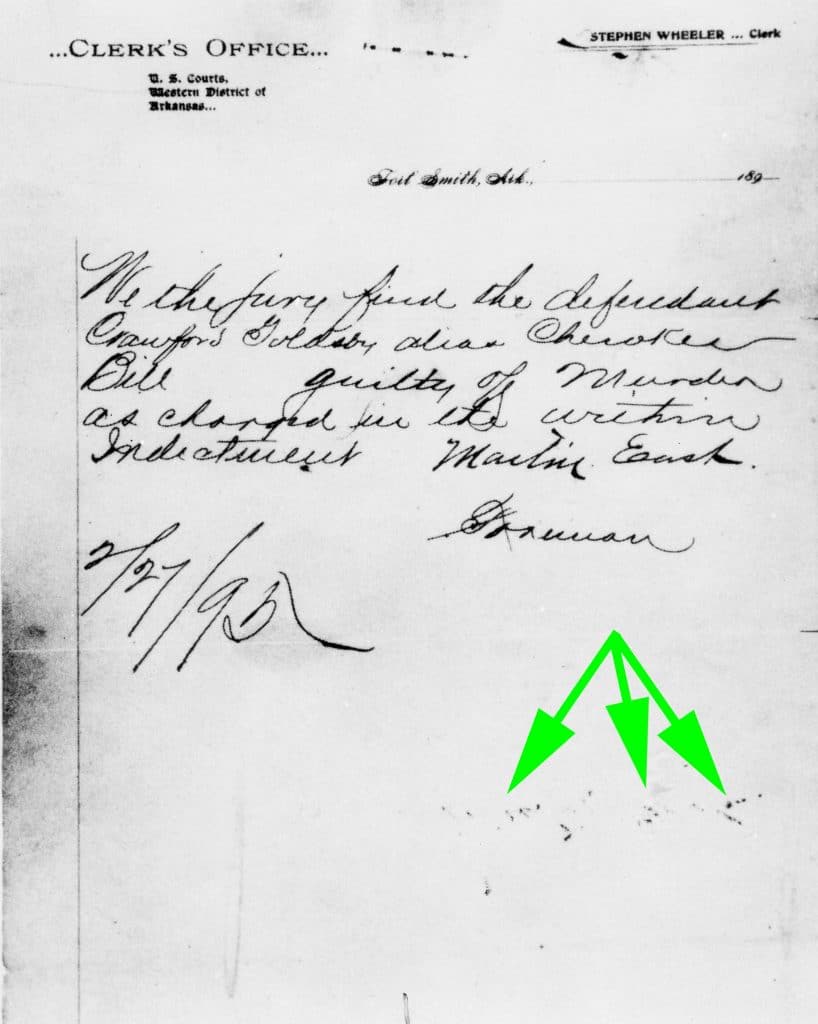 ...CLERK'S OFFICE...
STEPHEN WHEELER ... Clerk
U. S. Courts,
Western District of
Arkansas...
Fort Smith, Ark., 189
We the jury find the defendant
Crawford Goldsby alias Cherokee
Bill guilty of Murder
as charged in the within
Indictment Martin East.
Foreman
2/27/95